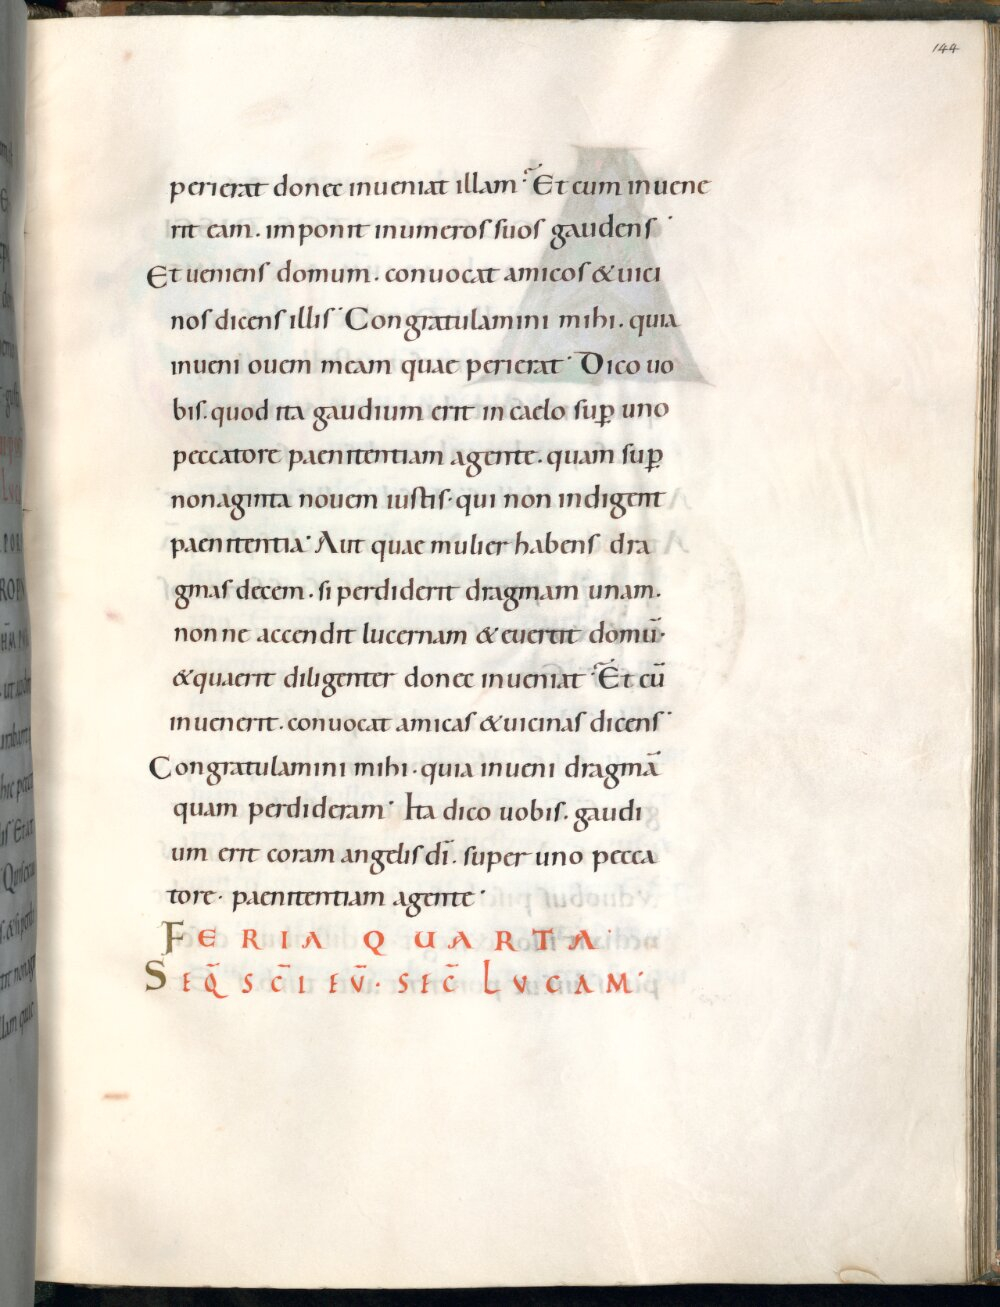 144
perierat donec inueniat illam· Et cum inuene
rit eam. imponit inumeros suos gaudens·
Et ueniens domum. conuocat amicos & uici
nos dicens illis· Congratulamini mihi. quia
inueni ouem meam quae perierat· Dico uo
bis. quod ita gaudium erit in caelo sup̱ uno
peccatore paenitentiam agente. quam sup̱
nonaginta nouem iustis· qui non indigent
paenitentia· Aut quae mulier habens dra
gmas decem. si perdiderit dragmam unam.
nonne accendit lucernam & euertit domū·
& quaerit diligenter donec inueniat· Et cū
inuenerit. conuocat amicas & uicinas dicens·
Congratulamini mihi· quia inueni dragmā
quam perdideram· Ita dico uobis. gaudi
um erit coram angelis dī. super uno pecca
tore· paenitentiam agente·
FERIA QUARTA·
SEQ̄ SC̄I EV̄· SEC̄ LVCAM·